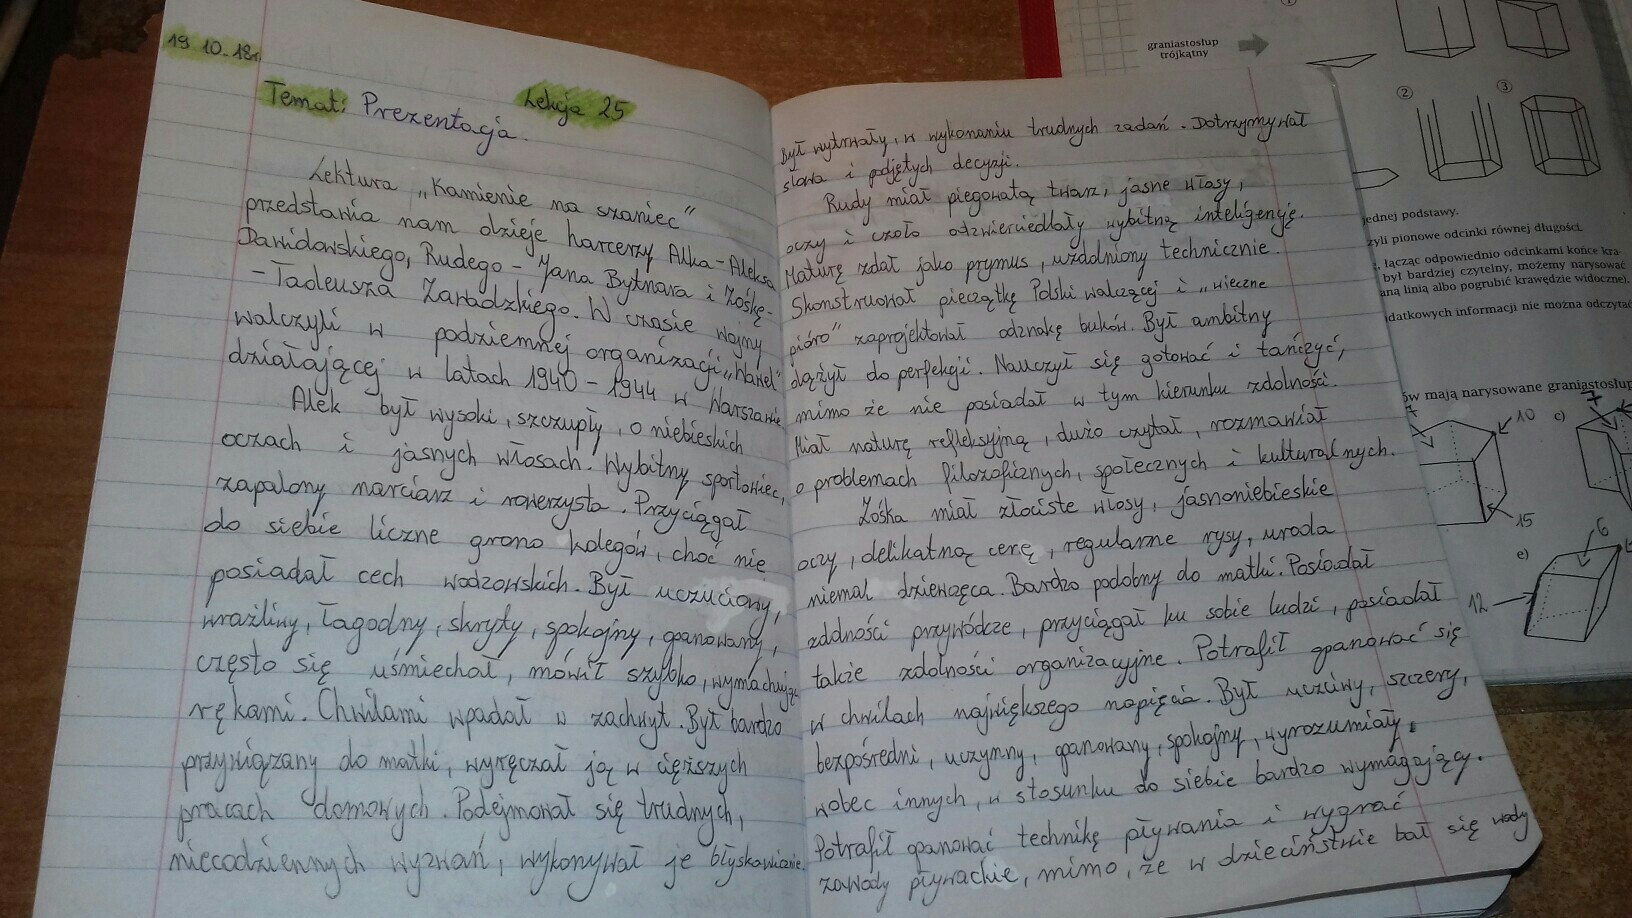 19 10. 18r.
Lekcja 25
Temat: Prezentacja.
Lektura „Kamienie na szaniec"
przedstawia nam dzieje harcerzy Alka-Aleksa
Dawidowskiego, Rudego - Jana Bytnara i Zośkę-
- Tadeusza Zawadzkiego. W czasie wojny
walczyli w podziemnej organizacji „Wawel"
działającej w latach 1940 - 1944 w Warszawie
Alek był wysoki, szczupły, o niebieskich
oczach i jasnych włosach. Wybitny sportowiec,
zapalony narciarz i rowerzysta. Przyciągał
do siebie liczne grono kolegów, choć nie
posiadał cech wodzowskich. Był uczuciowy,
wrażliwy, łagodny, skryty, spokojny, opanowany,
często się uśmiechał, mówił szybko, wymachując
rękami. Chwilami wpadał w zachwyt. Był bardzo
przywiązany do matki, wyręczał ją w cięższych
pracach domowych. Podejmował się trudnych,
niecodziennych wyzwań, wykonywał je błyskawicznie.
Był wytrwały, w wykonaniu trudnych zadań. Dotrzymywał
słowa i podjętych decyzji.
Rudy miał piegowatą twarz, jasne włosy,
oczy i czoło odzwierciedlały wybitną inteligencję.
Maturę zdał jako prymus, uzdolniony technicznie.
Skonstruował pieczątkę Polski walczącej i „wieczne
pióro" zaprojektował odznakę buków. Był ambitny
dążył do perfekcji. Nauczył się gotować i tańczyć,
mimo że nie posiadał w tym kierunku zdolności.
Miał naturę refleksyjną, dużo czytał, rozmawiał
o problemach filozoficznych, społecznych i kulturalnych.
Zośka miał złociste włosy, jasnoniebieskie
oczy, delikatną cerę, regularne rysy, uroda
niemal dziewczęca. Bardzo podobny do matki. Posiadał
zdolności przywódcze, przyciągał ku sobie ludzi, posiadał
także zdolności organizacyjne. Potrafił opanować się
w chwilach największego napięcia. Był uczciwy, szczery,
bezpośredni, uczynny, opanowany, spokojny, wyrozumiały,
wobec innych, w stosunku do siebie bardzo wymagający.
Potrafił opanować technikę pływania i wygrać
zawody pływackie, mimo, że w dzieciństwie bał się wody
graniastosłup
trójkątny
①
②
③
jednej podstawy.
czyli pionowe odcinki równej długości.
, łącząc odpowiednio odcinkami końce kra-
był bardziej czytelny, możemy narysować
aną linią albo pogrubić krawędzie widoczne.
datkowych informacji nie można odczytać
ów mają narysowane graniastosłup
7
10
c)
7
15
e)
6
12